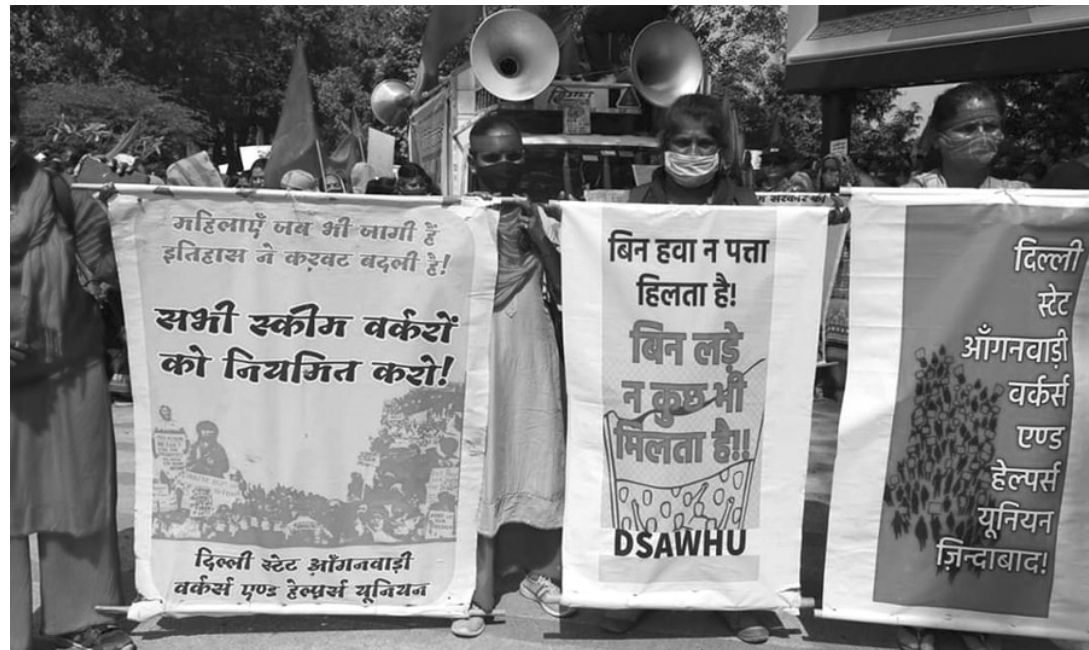 महिलाएँ जब भी जागी हैं
इतिहास ने करवट बदली है!
सभी स्कीम वर्करों
को नियमित करो!
दिल्ली स्टेट आँगनवाड़ी
वर्कर्स एण्ड हेल्पर्स यूनियन
बिन हवा न पत्ता
हिलता है!
बिन लड़े
न कुछ भी
मिलता है!!
DSAWHU
दिल्ली
स्टेट
आँगनवाड़ी
वर्कर्स
एण्ड
हेल्पर्स
यूनियन
ज़िन्दाबाद!